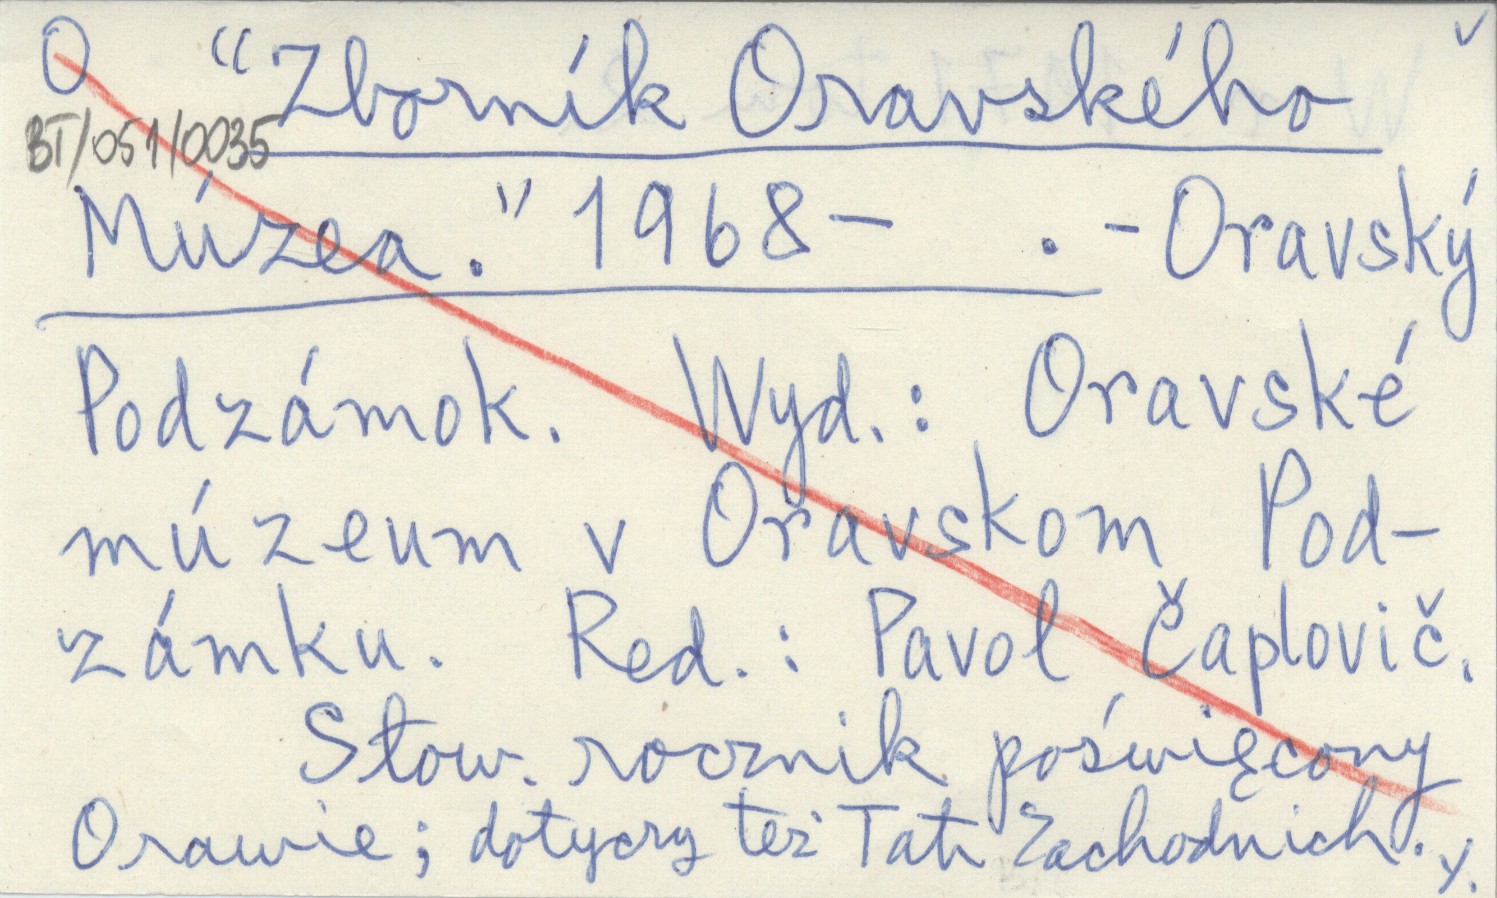 O "Zborník Oravského
BT/051/0035
Múzea." 1968 – . - Oravský
Podzámok. Wyd.: Oravské
múzeum v Oravskom Pod-
zámku. Red.: Pavol Čaplovič.
Słow. rocznik poświęcony
Orawie; dotyczy też Tatr Zachodnich. y.